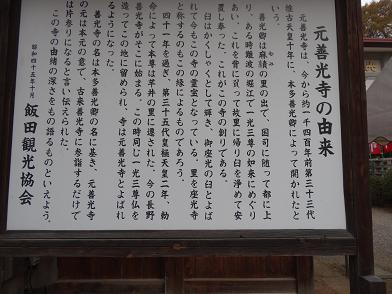 元善光寺の由来
元善光寺は、今から約一千四百年前第三十三代
推古天皇十年に、本多善光卿によって開かれたと
いう。
善光卿は麻績の里の出で、国司に随って都に上
り、ある時難波の堀で一光三尊の如来にめぐり
あい、これを背に負って故里に帰り臼を浄めて安
置し奉った。これがこの寺の創りである。
臼はかくしゃくとして輝き、御座光の臼とよば
れて今もこの寺の霊宝となっている。里を座光寺
と称するのもこの縁によるものであろう。
四十一年の過ぎ、第三十五代皇極天皇二年、勅
命によって本尊は芋井の里に還された。今の長野
善光寺がそこに始まる。この時同じ一光三尊仏を
造ってこの地に留められ、寺は元善光寺とよばれ
るようになった。
善光寺の名は本多善光卿の名に基き、元善光寺
の元は本元の意で、古来善光寺に参詣するだけで
は片参りになると言い伝えられた。
この寺の由緒の深さをもの語るものといえよう。
昭和四十五年十月
飯田観光協会